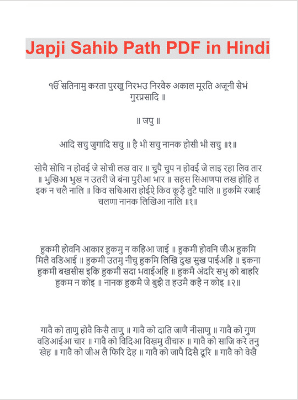 Japji Sahib Path PDF in Hindi
ੴ सतिनामु करता पुरखु निरभउ निरवैरु अकाल मूरति अजूनी सैभं
गुरप्रसादि ॥
॥ जपु ॥
आदि सचु जुगादि सचु ॥ है भी सचु नानक होसी भी सचु ॥१॥
सोचै सोचि न होवई जे सोची लख वार ॥ चुपै चुप न होवई जे लाइ रहा लिव तार
॥ भुखिआ भुख न उतरी जे बंना पुरीआ भार ॥ सहस सिआणपा लख होहि त
इक न चलै नालि ॥ किव सचिआरा होईऐ किव कूड़ै तुटै पालि ॥ हुकमि रजाई
चलणा नानक लिखिआ नालि ॥१॥
हुकमी होवनि आकार हुकमु न कहिआ जाई ॥ हुकमी होवनि जीअ हुकमि
मिलै वडिआई ॥ हुकमी उतमु नीचु हुकमि लिखि दुख सुख पाईअहि ॥ इकना
हुकमी बखसीस इकि हुकमी सदा भवाईअहि ॥ हुकमै अंदरि सभु को बाहरि
हुकम न कोइ ॥ नानक हुकमै जे बुझै त हउमै कहै न कोइ ॥२॥
गावै को ताणु होवै किसै ताणु ॥ गावै को दाति जाणै नीसाणु ॥ गावै को गुण
वडिआईआ चार ॥ गावै को विदिआ विखमु वीचारु ॥ गावै को साजि करे तनु
खेह ॥ गावै को जीअ लै फिरि देह ॥ गावै को जापै दिसै दूरि ॥ गावै को वेखै